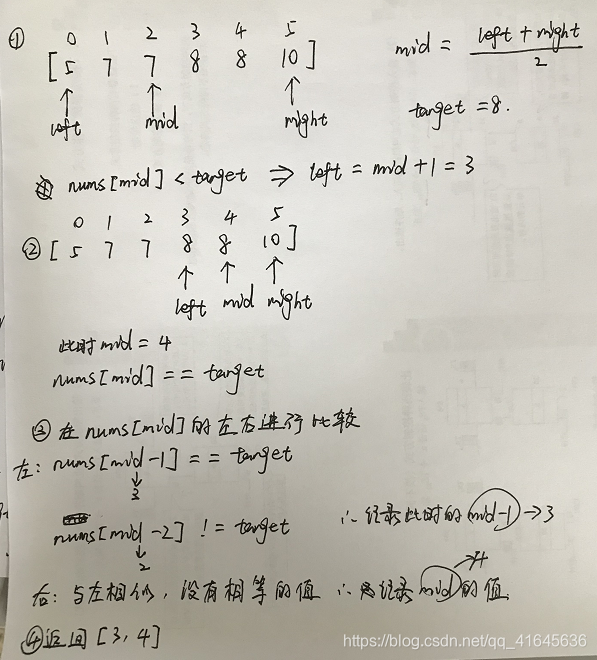 ① 0 1 2 3 4 5
[5 7 7 8 8 10]
left mid might
mid = left + might / 2
target = 8.
nums[mid] < target ⇒ left = mid + 1 = 3
0 1 2 3 4 5
② [5 7 7 8 8 10]
left mid might
此时 mid = 4
nums[mid] == target
③ 在 nums[mid] 的左右进行比较
左: nums[mid-1] == target
3
nums[mid-2] != target ∴记录此时的 mid-1 → 3
2
4
右: 与左相似, 没有相等的值 ∴记录 mid 的值
④返回 [3, 4]
https://blog.csdn.net/qq_41645636